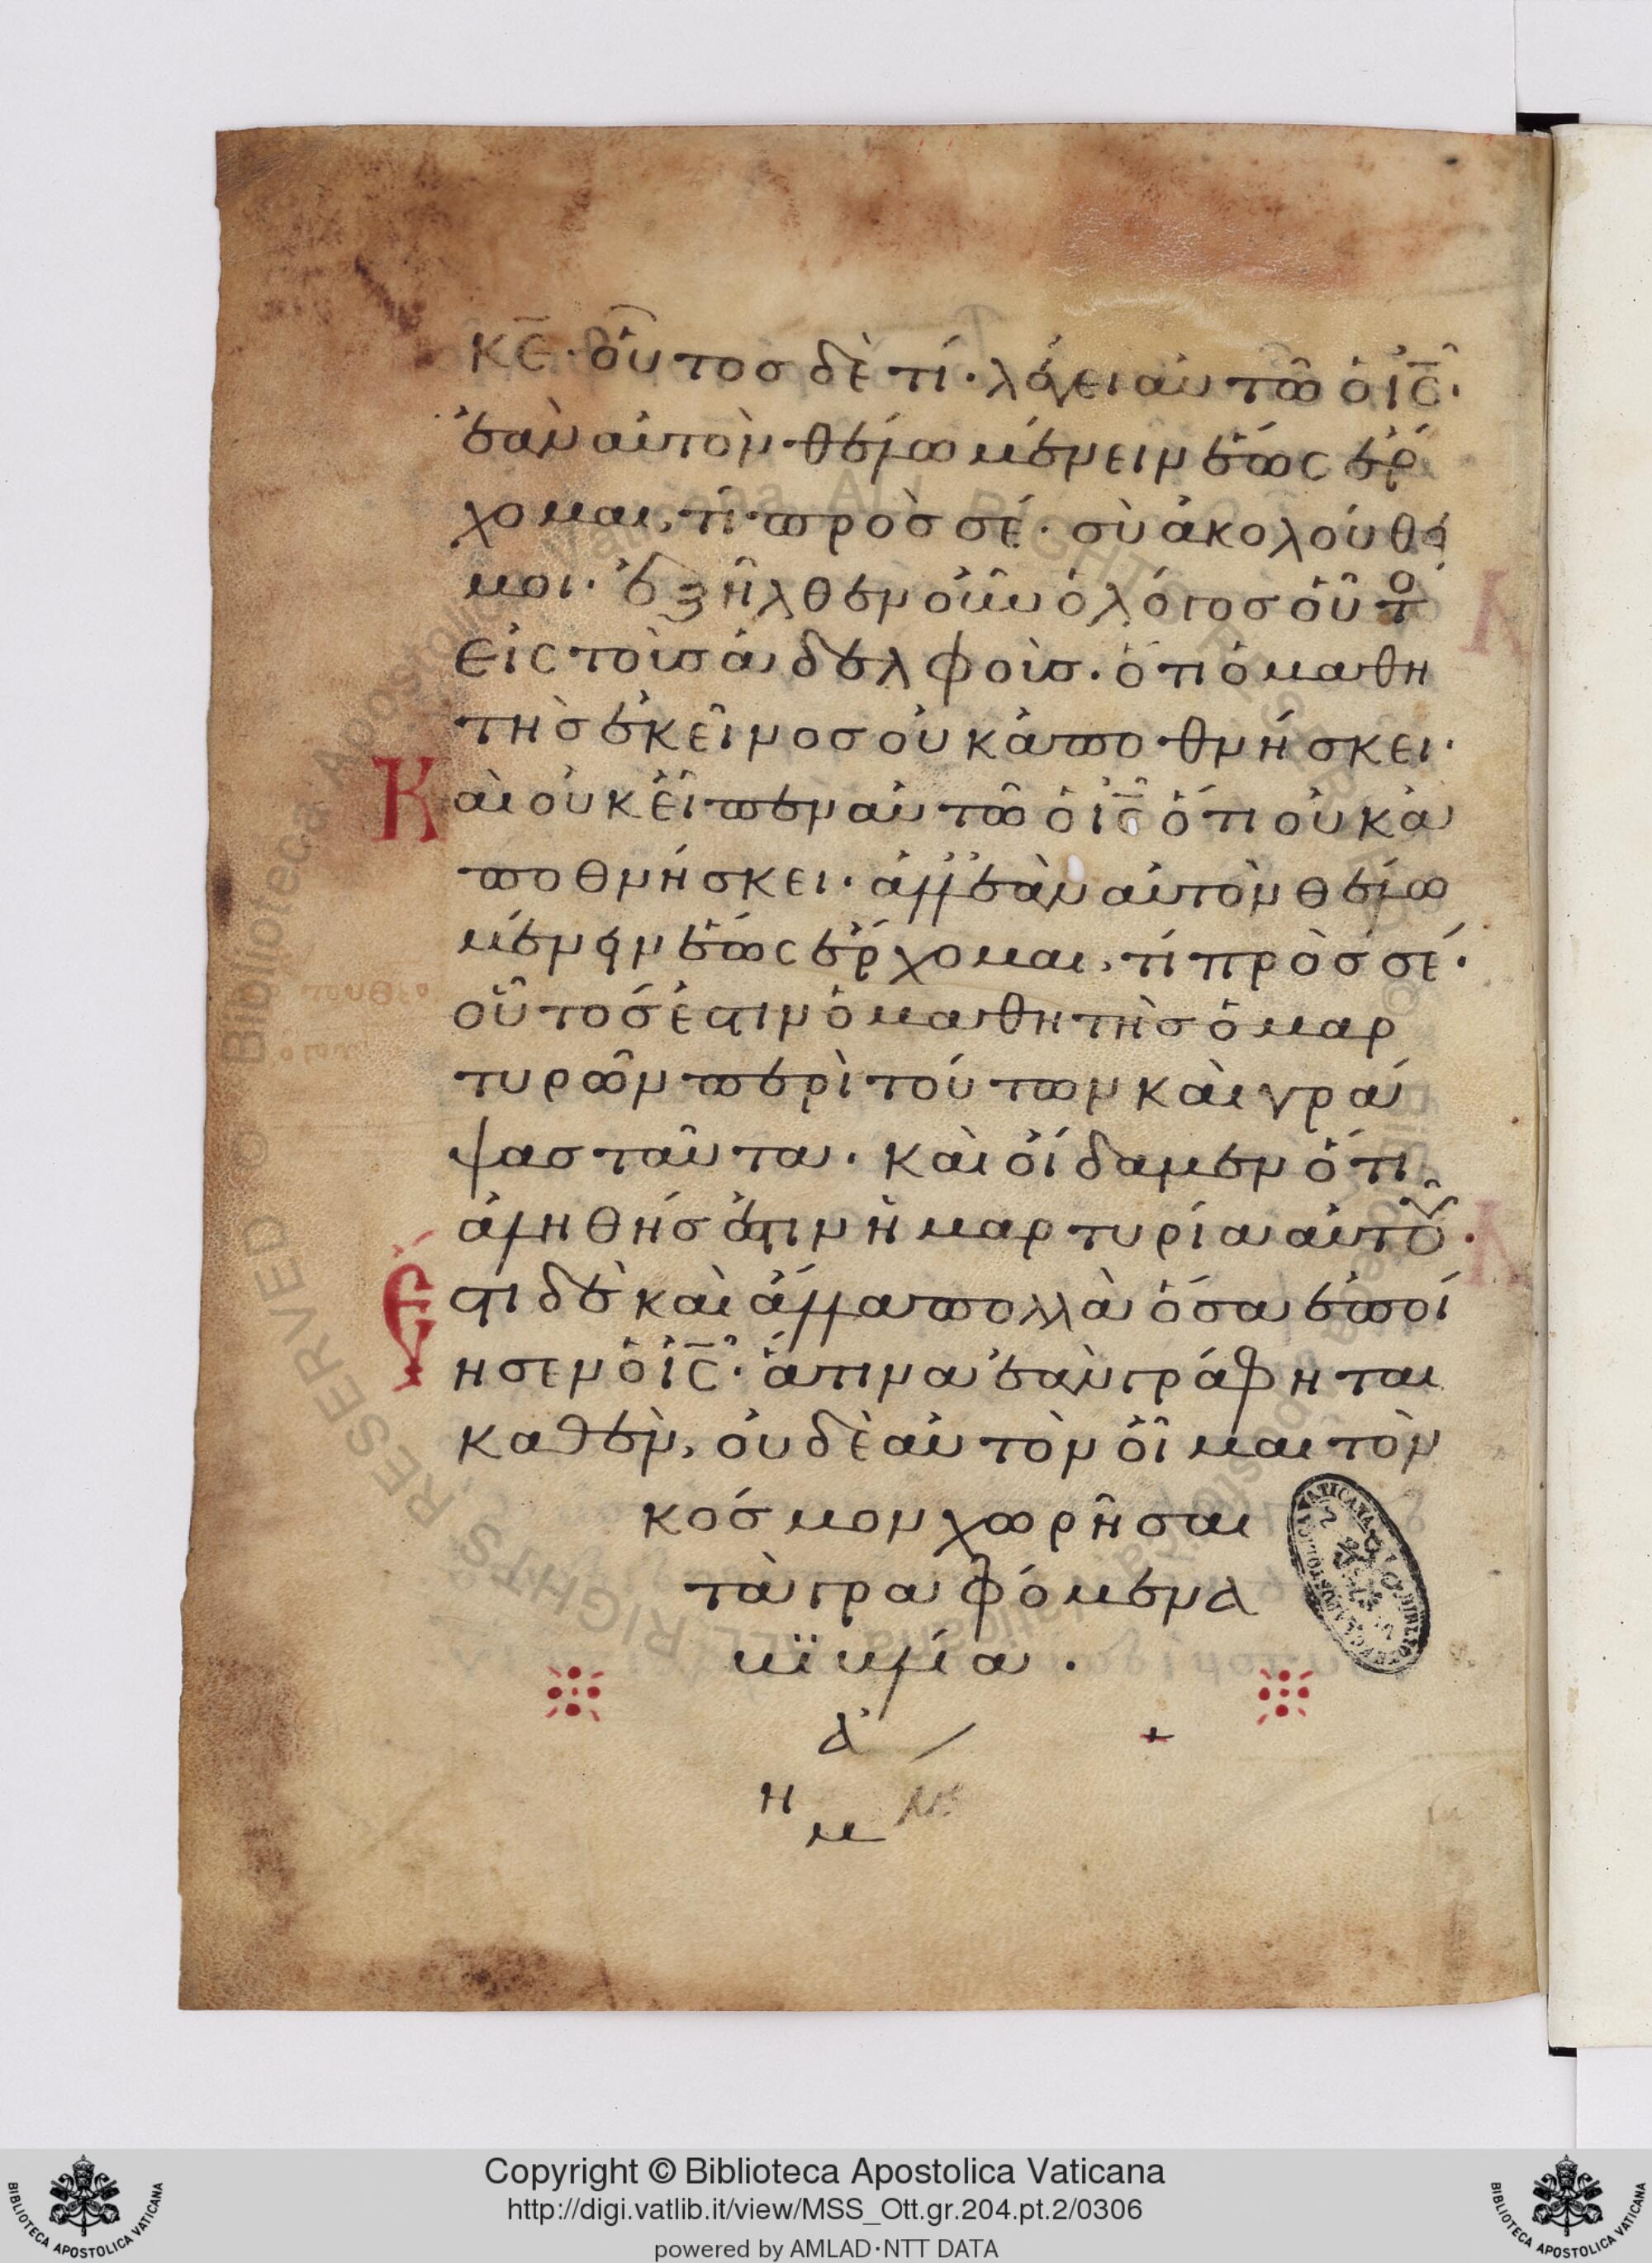 κ̅ε̅· οὗτοσ δὲ τί· λέγει αὐτῶ ὁ ι̅ς̅·
ἐὰν αὐτὸν θέλω μένειν ἕως ἔρ
χομαι, τί πρὸσ σέ· σὺ ἀκολούθει
μοι· ἐξῆλθεν οὖν ὁ λόγοσ οὗτο
εἰς τοὺσ ἀδελφοὺσ· ὅτι ὁ μαθη
τὴσ ἐκεῖνοσ οὐκ ἀποθνήσκει·
Καὶ οὐκ εἶπεν αὐτῶ ὁ ι̅ς̅ ὅτι οὐκ ἀ
ποθνήσκει· ἀλλ' ἐὰν αὐτὸν θέλω
μένειν ἕως ἔρχομαι, τί πρὸσ σέ·
οὗτόσ ἐστιν ὁ μαθητὴσ ὁ μαρ
τυρῶν περὶ τούτων καὶ γρά
ψασ ταῦτα· καὶ οἴδαμεν ὅτι
ἀληθήσ ἐστιν ἡ μαρτυρία αὐτοῦ·
Ἔστι δὲ καὶ ἄλλα πολλὰ ὅσα ἐποί
ησεν ὁ ι̅ς̅· ἅτινα ἐὰν γράφηται
καθέν, οὐδὲ αὐτὸν οἶμαι τὸν
κόσμον χωρῆσαι
τὰ γραφόμενα
βιβλία·
Biblioteca Apostolica Vaticana ALL RIGHTS RESERVED ©
Copyright © Biblioteca Apostolica Vaticana
http://digi.vatlib.it/view/MSS_Ott.gr.204.pt.2/0306
powered by AMLAD·NTT DATA
BIBLIOTECA APOSTOLICA VATICANA
BIBLIOTECA APOSTOLICA VATICANA